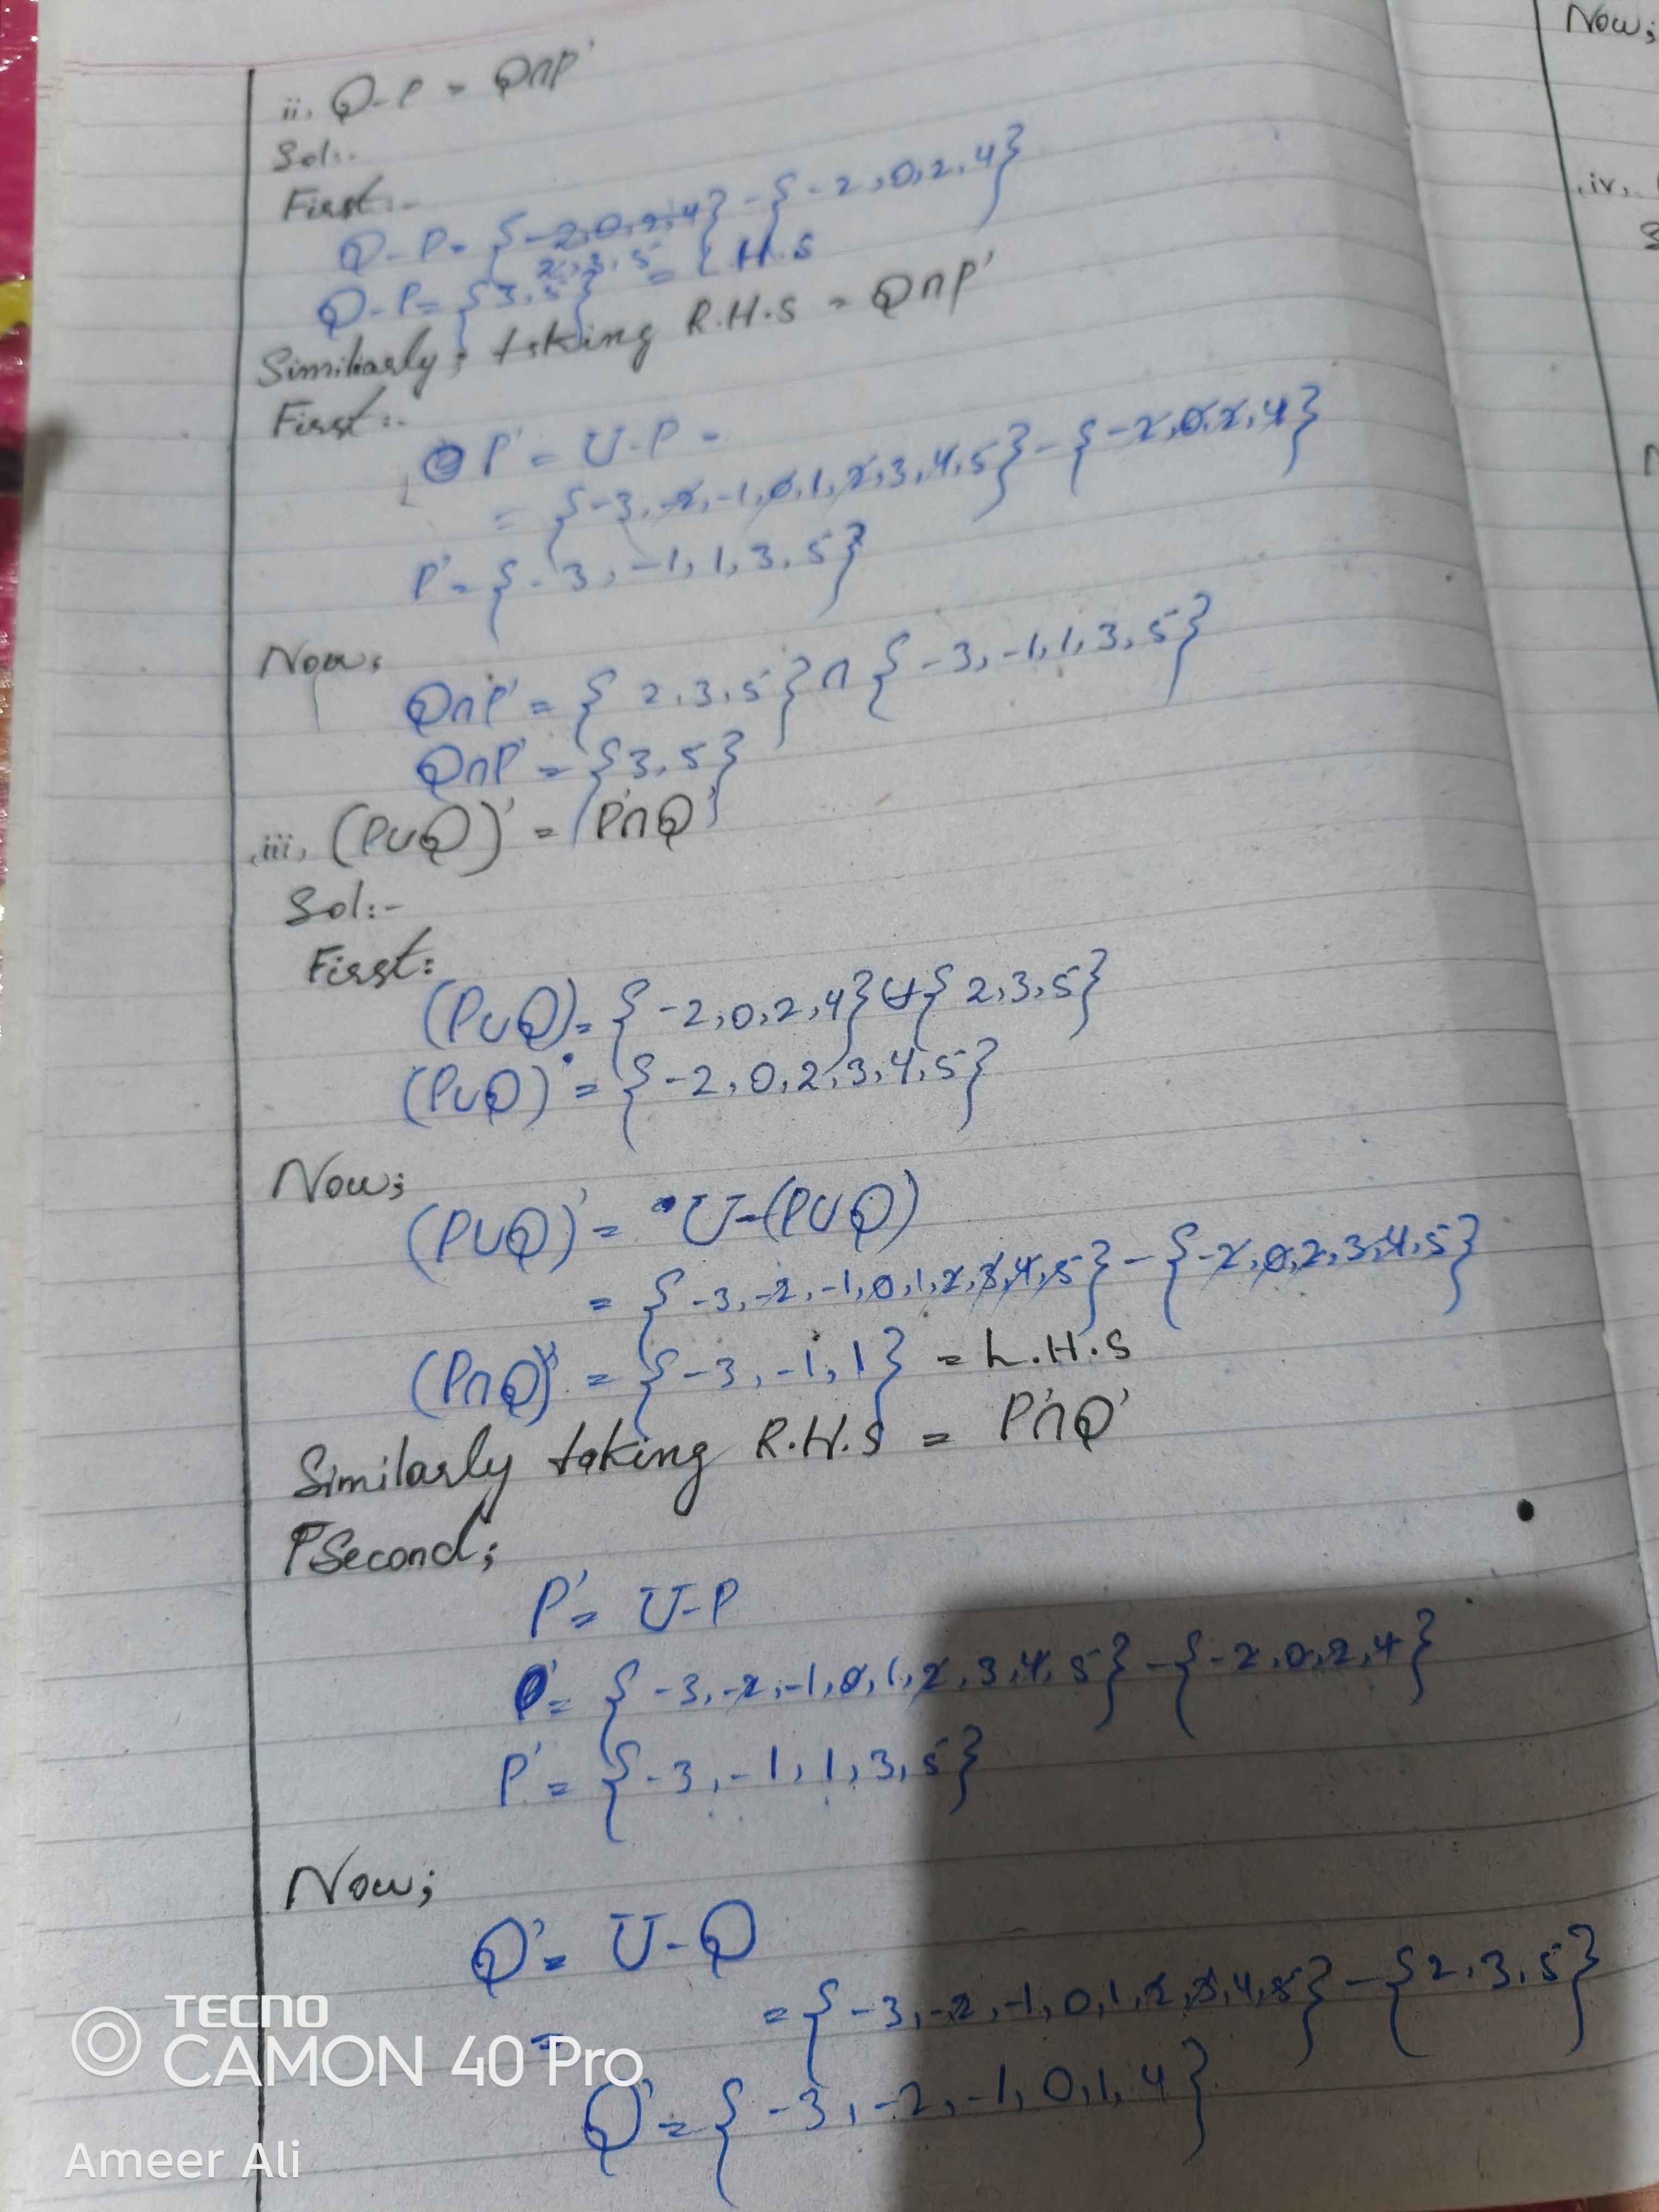 ii, Q-P = Q∩P'
Sol:-
First:-
Q-P = {-2,0,2,4} - {-2,0,2,4}
2,3,5
Q-P = {3,5} = L.H.S
Similiarly; taking R.H.S = Q∩P'
First:-
P' = U-P =
= {-3,-2,-1,0,1,2,3,4,5} - {-2,0,2,4}
P' = {-3,-1,1,3,5}
Now;
Q∩P' = {2,3,5} ∩ {-3,-1,1,3,5}
Q∩P' = {3,5}
iii, (P∪Q)' = P'∩Q'
Sol:-
First:
(P∪Q) = {-2,0,2,4} ∪ {2,3,5}
(P∪Q) = {-2,0,2,3,4,5}
Now;
(P∪Q)' = U-(P∪Q)
= {-3,-2,-1,0,1,2,3,4,5} - {-2,0,2,3,4,5}
(P∩Q)' = {-3,-1,1} = L.H.S
Similarly taking R.H.S = P'∩Q'
Second;
P' = U-P
= {-3,-2,-1,0,1,2,3,4,5} - {-2,0,2,4}
P' = {-3,-1,1,3,5}
Now;
Q' = U-Q
= = {-3,-2,-1,0,1,2,3,4,5} - {2,3,5}
Q' = {-3,-2,-1,0,1,4}
Now;
iv,
TECNO
CAMON 40 Pro
Ameer Ali